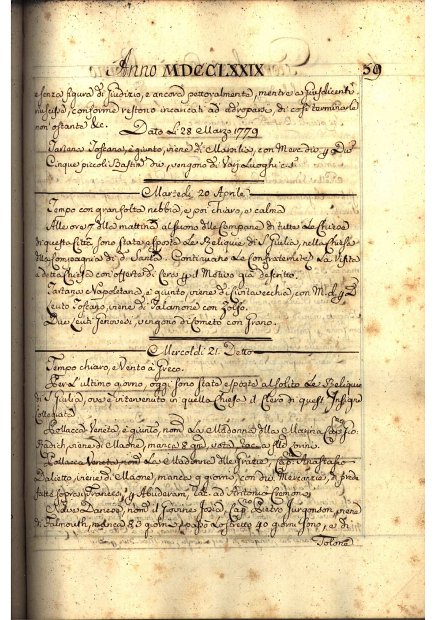 Anno MDCCLXXIX 59
e senza figura di Giudizio, e ancora pettoralmente, mentre a
conforme restono incaricati ad
non ostante &c.
Dato Li: 28 Marzo 1779
Tartana Toscana, è giunto, viene di con Merc.
Cinque piccoli Bastim. vengono di Varj Luoghi
Martedì, 20 Aprile
Tempo con gran folta nebbia, e poi chiaro, e calma
Alle ore 7 della mattina al suono delle Campane di tutte Le Chiese
di questa Città sono state esposte Le Reliquie di S. Giulia, nella Chiesa
della Compagnia di d. Santa Continuano Le Confraternite La Visita
a detta Chiesa con offerte di Cera il Motivo già descritto.
Tartana Napoletana, è giunto, viene di Civitavecchia, con M.
Leuto Toscano, viene di Talamone con Zolfo.
Due Leuti Genovesi, vengono di Corneto con Grano.
Mercoldì 21: Detto
Tempo chiaro, e Vento à Greco.
Per L'ultimo giorno, oggi sono state esposte al solito Le Reliquie
di S. Giulia, ove è intervenuto in quella Chiesa il Clero di quest' Insigne
Collegiata
Pollacca Veneta, è giunto, nom. La Madonna della Marina, Cap.
viene di Maone, manca 8 gni, vota
Pollacca Veneta nom. La Madonna delle Grazie, Cap. Anastasio
viene di Maone, manca 9 giorni, con div. Mercanzie, di
fatte sopra i Francesi, ad Antonio
Nave Danese, nom. Cap. Pietro Jurgenson, viene
di Falmouth, manca 83 giorni, e passò Lo Stretto 40 giorni sono, e di
Tolone